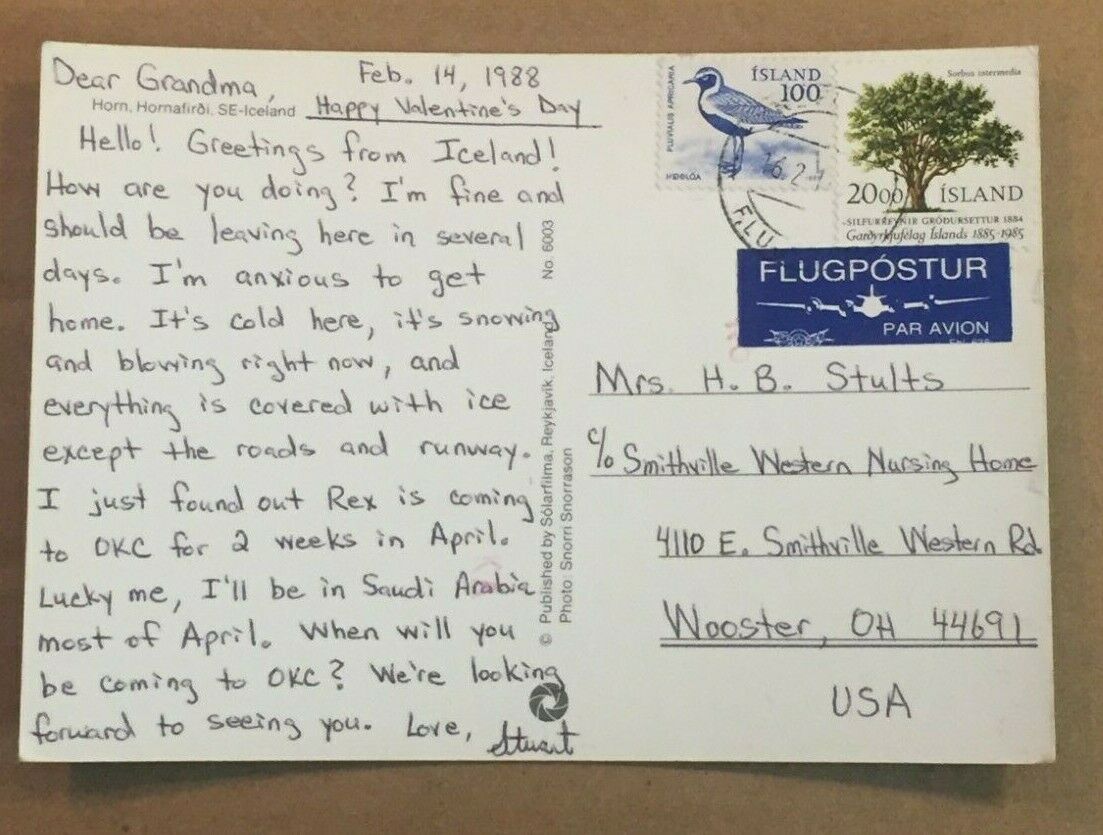 Dear Grandma,
Feb. 14, 1988
Horn, Hornafirði, SE-Iceland
Happy Valentine's Day
Hello! Greetings from Iceland!
How are you doing? I'm fine and
should be leaving here in several
days. I'm anxious to get
home. It's cold here, it's snowing
and blowing right now, and
everything is covered with ice
except the roads and runway.
I just found out Rex is coming
to OKC for 2 weeks in April.
Lucky me, I'll be in Saudi Arabia
most of April. When will you
be coming to OKC? We're looking
forward to seeing you. Love, Stuart
No. 6003
© Published by Sólarfilma, Reykjavík, Iceland
Photo Snorri Snorrason
PLUVIALIS APRICARIA
ÍSLAND
100
HEIÐLÓA
16.2
FLU
Sorbus intermedia
2000 ÍSLAND
SILFURREYNIR GRÓÐURSETTUR 1884
Garðyrkjufélag Íslands 1885-1985
FLUGPÓSTUR
PAR AVION
Mrs. H. B. Stults
c/o Smithville Western Nursing Home
4110 E. Smithville Western Rd.
Wooster, OH 44691
USA